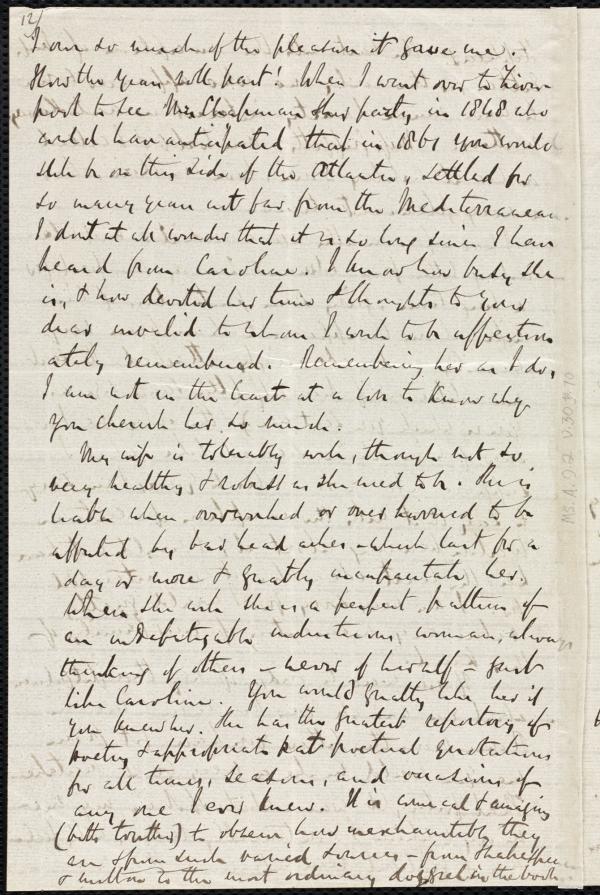 12/
I owe so much of the pleasure it gave me.
How the years roll past! When I went over to Liver-
pool to see Mrs Chapman & her party, in 1848 who
could have anticipated that in 1861 you would
still be on this side of the Atlantic, settled for
so many years not far from the Mediterranean.
I dont at all wonder that it is so long since I have
heard from Caroline. I know how busy she
is, & how devoted her time & thoughts to your
dear invalid to whom I wish to be affection
ately remembered. Remembering her as I do,
I am not in the least at a loss to know why
you cherish her so much.
My wife is tolerably well, though not so
very healthy & robust as she used to be. She is
liable when overworked or over hurried to be
affected by bad head aches – which last for a
day or more & greatly incapacitate her.
When she is well she is a perfect pattern of
an indefatigable industrious woman, always
thinking of others – never of herself – just
like Caroline. You would greatly like her if
you knew her. She has the greatest repertory of
poetry & appropriate pat poetical quotations
for all times, seasons, and occasions of
any one I ever knew. It is comical & amazing
(both together) to observe how inexhaustibly they
are & from such varied sources – from Shakespeare
& Milton to the most ordinary doggrel in the book
Ms. A. 9. 2 v. 30, # 10